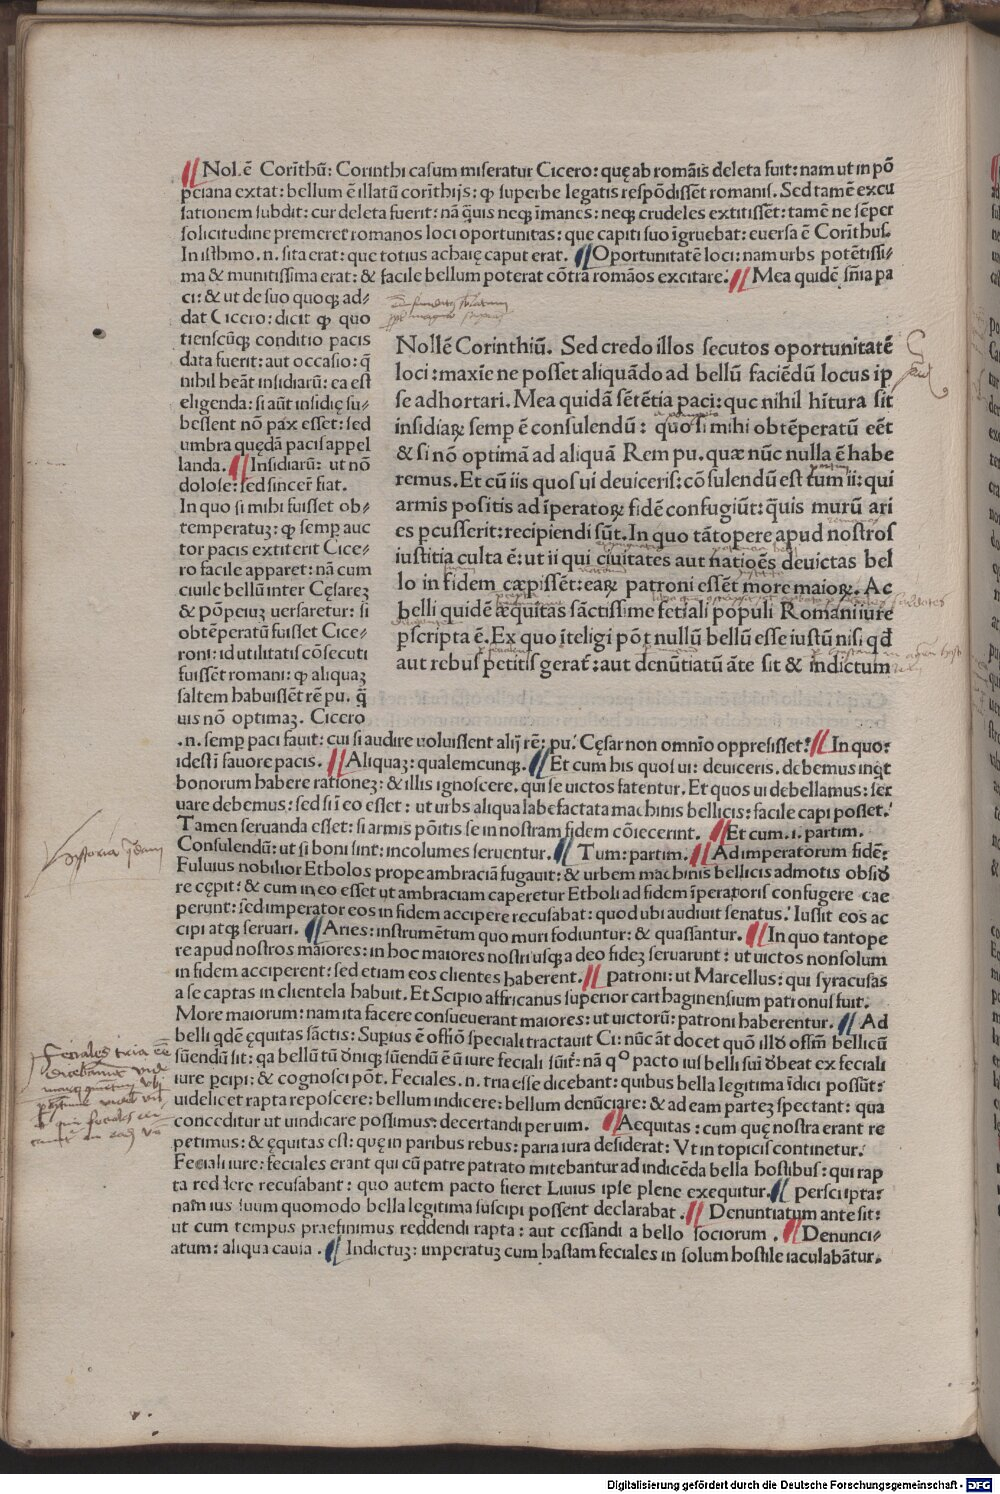 Nol.ē Corīthū: Corinthi casum miseratur Cicero: quę ab romāis deleta fuit: nam ut in pō
peiana extat: bellum ē illatū corīthijs: ꝙ superbe legatis respōdissēt romanis. Sed tamē excu
sationem subdit: cur deleta fuerit: nā q̄uis neqꝫ īmanes: neqꝫ crudeles extitissēt: tamē ne sēper
solicitudine premeret romanos loci oportunitas: que capiti suo īgruebat: euersa ē Corīthus.
In isthmo.n. sita erat: que totius achaię caput erat. Oportunitatē loci: nam urbs potētissi-
ma & munitissima erat: & facile bellum poterat cōtra romāos excitare. Mea quidē sn̄ia pa
ci: & ut de suo quoqꝫ ad-
dat Cicero: dicit ꝙ quo
tienscūqꝫ conditio pacis
data fuerit: aut occasio: q̄
nihil beāt insidiarū: ea est
eligenda: si aūt insidię su-
bessent nō pax esset: sed
umbra quędā pacis appel
landa. Insidiarū: ut nō
dolose: sed sincer fiat.
In quo si mihi fuisset ob-
temperatuꝫ: ꝙ semꝑ auc
tor pacis extiterit Cice-
ro facile apparet: nā cum
ciuile bellū inter Cęsareꝫ
& Pōpeiuꝫ uersaretur: si
obtēperatū fuisset Cice-
roni: id utilitatis cōsecuti
fuissēt romani: ꝙ aliquaꝫ
saltem habuissēt rē pu. q̄
uis nō optimaꝫ. Cicero
Nollē Corinthiū. Sed credo illos secutos oportunitatē
loci: maxīe ne posset aliquādo ad bellū faciēdū locus ip
se adhortari. Mea quidā sētētia paci: que nihil hītura sit
insidiaꝝ semꝑ ē consulendū: quo si mihi obtēperatū eēt
& si nō optimā ad aliquā Rem pu. quæ nūc nulla ē habe
remus. Et cū iis quos ui deuiceris: cōsulendū est tum ii: qui
armis positis ad īperatoꝝ fidē confugiūt: q̄uis murū ari
es ꝑcusserit: recipiendi sūt. In quo tātopere apud nostros
iustitia culta ē: ut ii qui ciuitates aut natioēs deuictas bel
lo in fidem cæpissēt: eaꝝ patroni essēt more maioꝝ. Ac
belli quidē æquitas sāctissime fetiali populi Romani iure
ꝑscripta ē. Ex quo īteligi pōt nullū bellū esse iustū nisi qd̄
aut rebus petitis gerat̄: aut denūtiatū āte sit & indictum
.n. semꝑ paci fauit: cui si audire uoluissent alij rē: pu. Cęsar non omnīo oppresisset. In quo:
idest ī fauore pacis. Aliquaꝫ: qualemcunqꝫ. Et cum his quos ui: deuiceris. debemus inq̄t
bonorum habere rationeꝫ: & illis ignoscere. qui se uictos fatentur. Et quos ui debellamus: ser
uare debemus: sed si ī eo esset: ut urbs aliqua labefactata machinis bellicis: facile capi posset.
Tamen seruanda esset: si armis pōitis se in nostram fidem cōiecerint. Et cum.i. partim.
Consulendū: ut si boni sint: incolumes seruentur. Tum: partim. Ad imperatorum fidē:
Fuluius nobilior Etholos prope ambraciā fugauit: & urbem machinis bellicis admotis obsid
re cępit: & cum in eo esset ut ambraciam caperetur Etholi ad fidem īperatoris confugere cae
perunt: sed imperator eos in fidem accipere recusabat: quod ubi audiuit senatus. Iussit eos ac
cipi atqꝫ seruari. Aries: instrumētum quo muri fodiuntur: & quassantur. In quo tantope
re apud nostros maiores: in hoc maiores nostri usqꝫ a deo fideꝫ seruarunt: ut uictos non solum
in fidem acciperent: sed etiam eos clientes haberent. patroni: ut Marcellus: qui syracusas
a se captas in clientela habuit. Et Scipio affricanus superior carthaginensium patronus fuit.
More maiorum: nam ita facere consueuerant maiores: ut uictorū: patroni haberentur. Ad
belli qdē ęquitas sāctis: Supius ē offīō speciali tractauit Ci: nūc āt docet quō illd̄ offm̄ bellicū
sūendū sit: qa bellū tū dōiqꝫ sūendū ē ū iure feciali sūit: nā qº pacto ius belli suī dōbeat ex feciali
iure ꝑcipi: & cognosci pōt. Feciales.n. tria esse dicebant: quibus bella legitima īdici possūt:
uidelicet rapta reposcere: bellum indicere: bellum denūciare: & ad eam parteꝫ spectant: qua
conceditur ut uindicare possimus: decertandi per uim. Aequitas: cum quę nostra erant re
petimus: & ęquitas est: quę in paribus rebus: paria iura desiderat: Vt in topicis continetur.
Feciali iure: feciales erant qui cū patre patrato mitebantur ad indicēda bella hostibus: qui rap
ta reddere recusabant: quo autem pacto fieret Liuius ipse plene exequitur. perscripta:
nam ius suum quomodo bella legitima suscipi possent declarabat. Denuntiatum ante sit:
ut cum tempus praefinimus reddendi rapta: aut cessandi a bello sociorum. Denunci-
atum: aliqua causa. Indictuꝫ: imperatuꝫ cum hastam feciales in solum hostile iaculabātur.
Feciales tria eē
dicebant
Digitalisierung gefördert durch die Deutsche Forschungsgemeinschaft - DFG